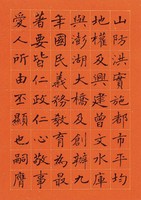 山防洪實施都市平均
地權及興建曾文水庫
與澎湖大橋及創辦九
年國民義務教育為最
著要皆仁政仁心敬事
愛人所由丕顯也嗣膺